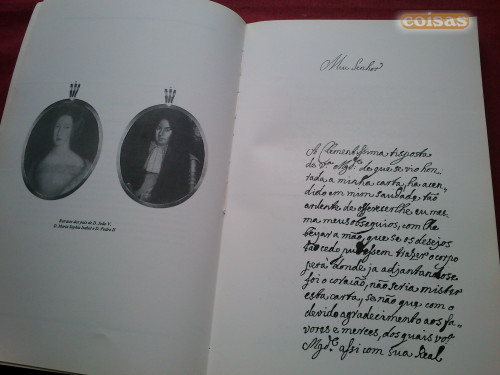 coisas
Retratos dos pais de D. João V,
D. Maria Sophia Isabel e D. Pedro II
Meu Senhor
A Clementissima resposta
de V.ª Mg.de de que se vio hon-
rada a minha carta, ha acen-
dido em mim saudade tão
ardente de offereserlhe eu mes-
ma meus obsequios, com lhe
beyar a mão, que se os desejos
tão cedo pudessem trazer o corpo
pera donde ja adjantandose
foi o coração, não seria mister
esta carta, se não que com o
devido agradecimento aos fa-
vores e merces, dos quais voss.ª
Mg.de assi com sua Real